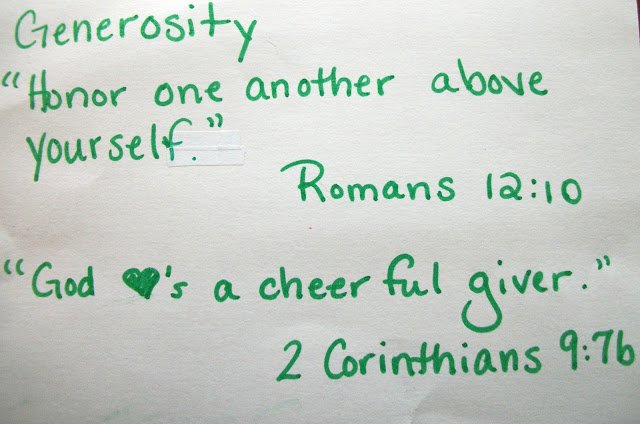 Generosity
"Honor one another above
yourself."
Romans 12:10
"God ♥'s a cheerful giver."
2 Corinthians 9:7b